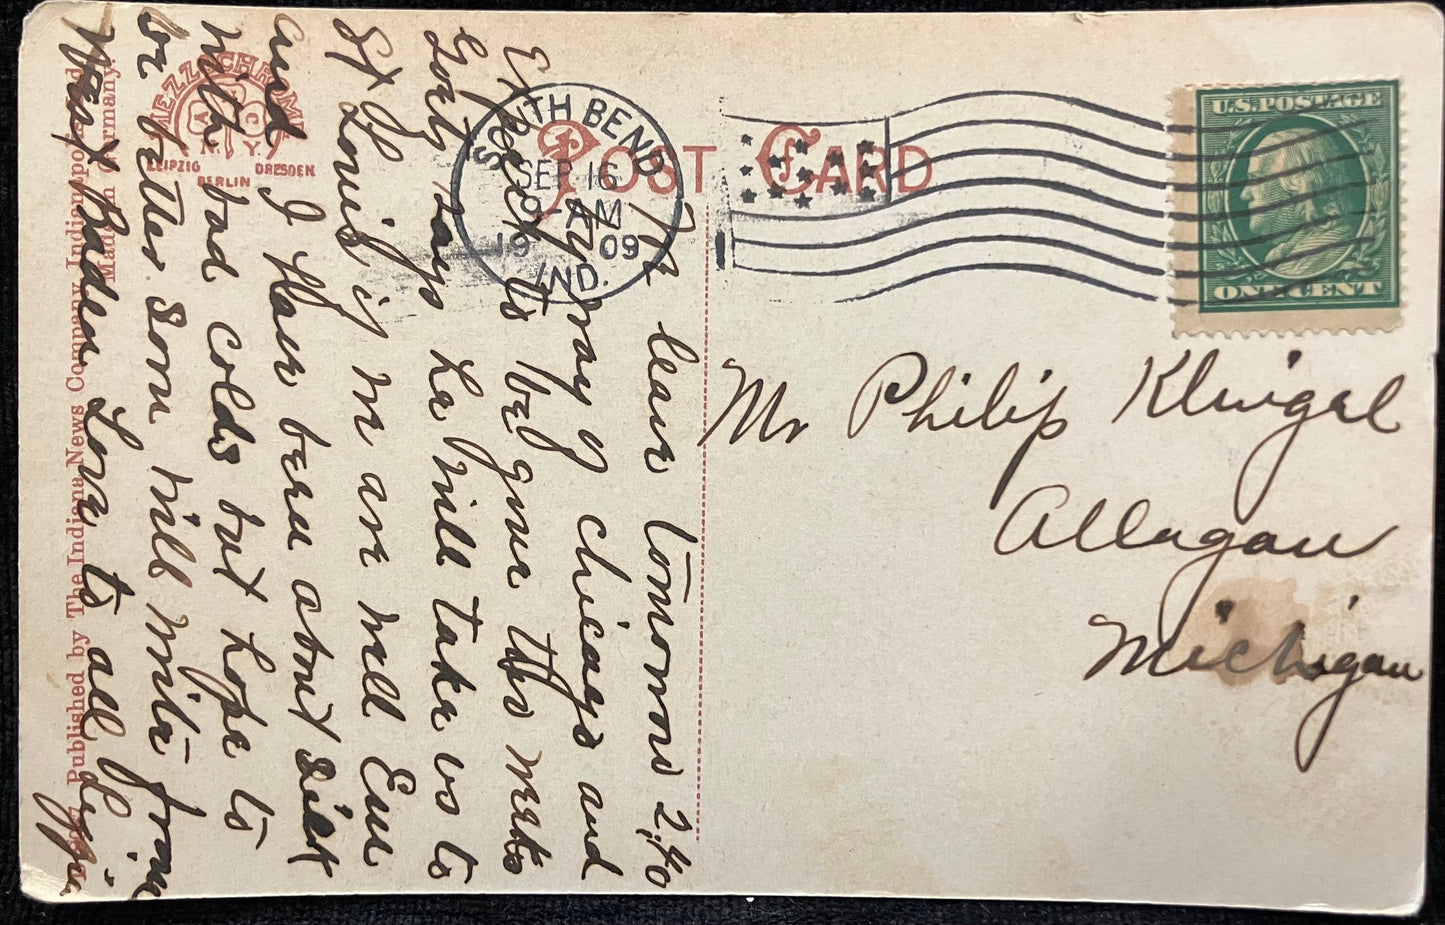 POST CARD
U.S. POSTAGE
ONE CENT
SOUTH BEND
SEP 16
9 AM
1909
IND.
MEZZOCHROME
A C
N.Y.
LEIPZIG
BERLIN
DRESDEN
Published by The Indiana News Company, Indianapolis, Ind.
Made in Germany.
Mr Philip Klingel
Allegan
Michigan
We leave tomorrow 2,40
by way of Chicago and
Expect to be gone two weeks
Gorty says he will take us to
St Louis if we are well Enu
and I Have been about sick
with bad colds but hope to
be better soon will write from
West Baden Love to all Lizzie